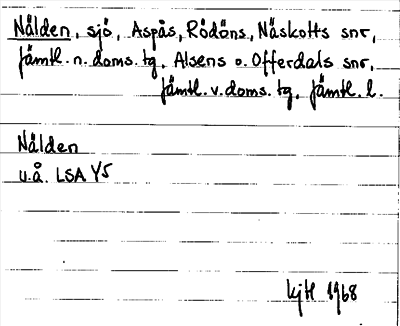 Nälden, sjö, Aspås, Rödöns, Näskotts snr,
Jämtl. n. doms. tg, Alsens o. Offerdals snr,
Jämtl. v. doms. tg, Jämtl. l.
Nälden
u.å. LSA Y5
KjH 1968